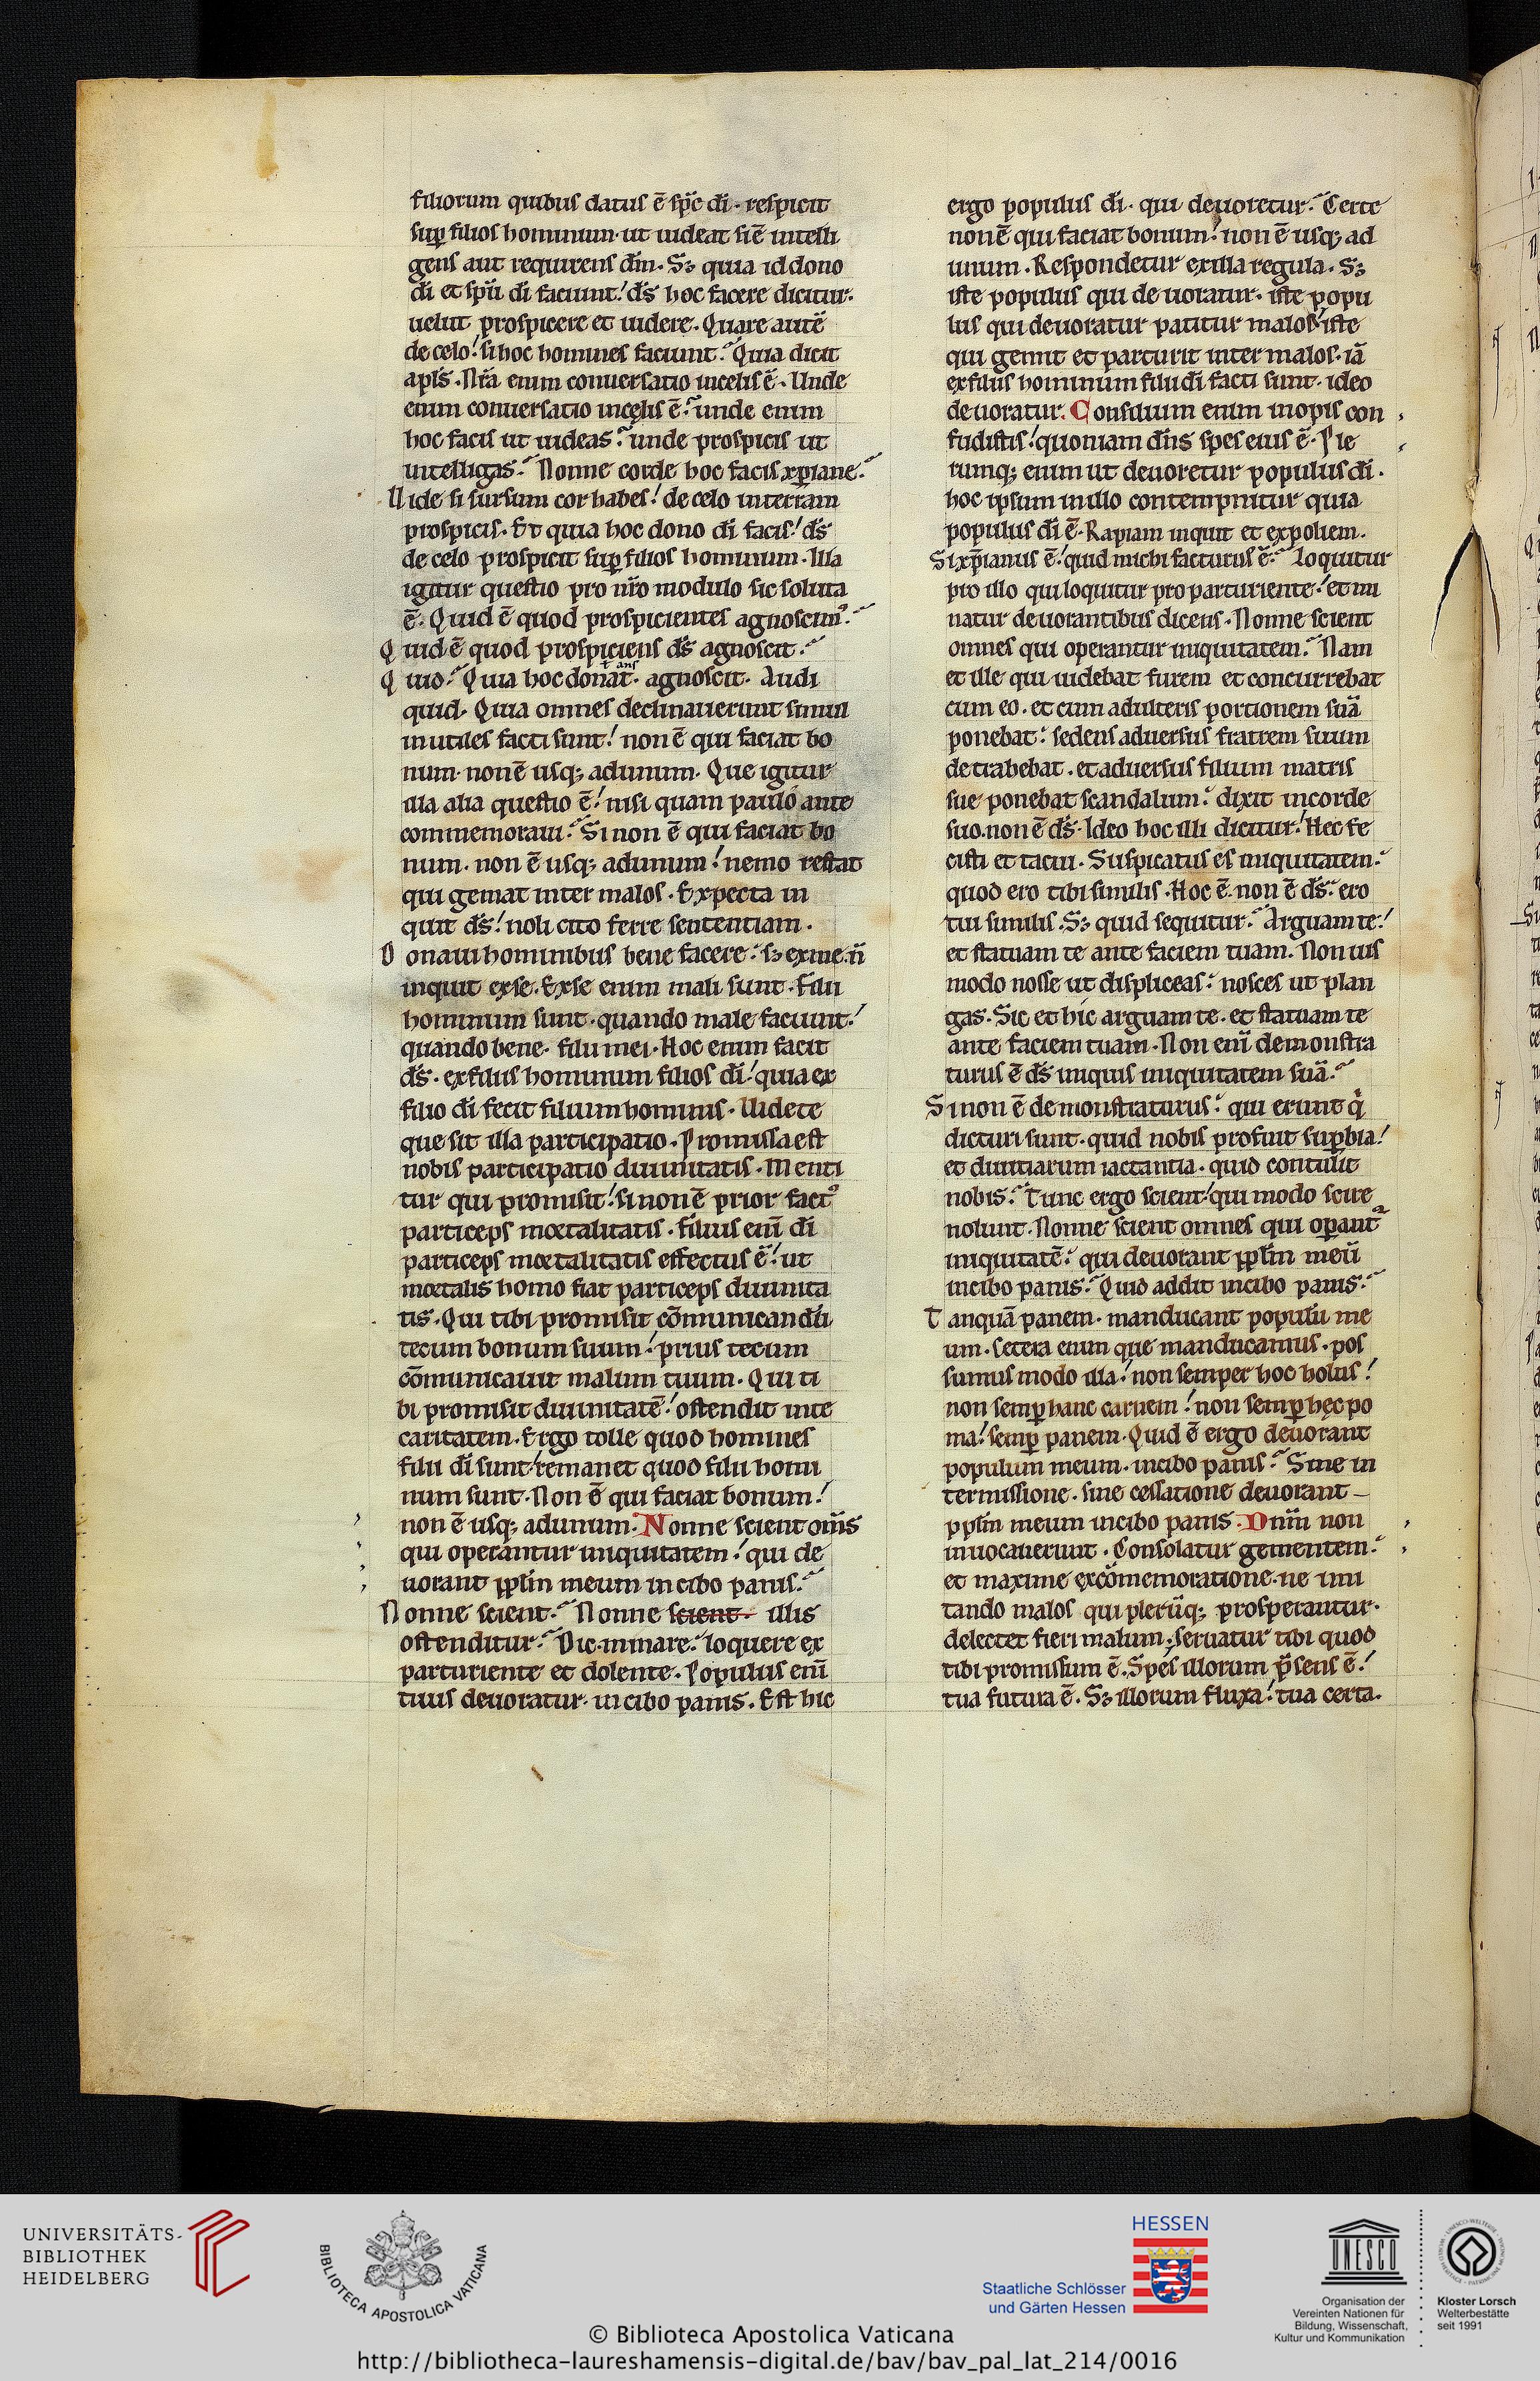 filiorum quibus datus ē sp̄c dī· respicit
suꝑ filios hominum· ut uideat si ē intelli
gens aut requirens dm̄. Sꝫ quia id dono
dī et spū dī faciunt! ds̄ hoc facere dicitur.
uelut prospicere et uidere. Quare autē
de celo! si hoc homines faciunt? Quia dicit
apls̄. Nr̄a enim conuersatio in celis ē. Unde
enim conuersatio in cęlis ē? unde enim
hoc facis ut uideas? unde prospicis ut
intelligas? Nonne corde hoc facis xp̄iane?
Uide si sursum cor habes! de celo in terram
prospicis. Et quia hoc dono dī facis! ds̄
de celo prospicit suꝑ filios hominum. Illa
igitur questio pro nr̄o modulo sic soluta
ē. Quid ē quod prospicientes agnoscim᾽?
Quid ē quod prospiciens ds̄ agnoscit?
Quio? Quia hoc donat· agnoscit. Audi
quid. Quia omnes declinauerunt simul
inutiles facti sunt! non ē qui faciat bo
num· non ē usqꝫ ad unum. Que igitur
illa alia questio ē! nisi quam paulo ante
commemoraui? Si non ē qui faciat bo
num. non ē usqꝫ ad unum! nemo restat
qui gemat inter malos. Expecta in
quit ds̄! noli cito ferre sententiam.
Donaui hominibus bene facere? sꝫ ex me. n̄
inquit ex se. Ex se enim mali sunt. Filii
hominum sunt. quando male faciunt!
quando bene. filii mei. Hoc enim facit
ds̄. ex filiis hominum filios dī! quia ex
filio dī fecit filium hominis. Uidete
que sit illa participatio. Promissa est
nobis participatio diuinitatis. Menti
tur qui promisit! si non ē prior fact᾽
particeps mortalitatis. Filius enī dī
particeps mortalitatis effectus ē! ut
mortalis homo fiat particeps diuinita
tis. Qui tibi promisit cōmunicandū
tecum bonum suum! prius tecum
cōmunicauit malum tuum. Qui ti
bi promisit diuinitatē! ostendit in te
caritatem. Ergo tolle quod homines
filii dī sunt! remanet quod filii homi
num sunt. Non ē qui faciat bonum!
non ē usqꝫ ad unum. Nonne scient om̄s
qui operantur iniquitatem! qui de
uorant pplm̄ meum in cibo panis?
Nonne scient? Nonne scient. illis
ostenditur? Dic. minare? loquere ex
parturiente et dolente. Populus enī
tuus deuoratur. in cibo panis. Est hic
ergo populus dī. qui deuoretur? Certe
non ē qui faciat bonum! non ē usqꝫ ad
unum. Respondetur ex illa regula. Sꝫ
iste populus qui deuoratur. iste popu
lus qui deuoratur patitur malos! iste
qui gemit et parturit inter malos. iā
ex filiis hominum filii dī facti sunt. ideo
deuoratur. Consilium enim inopis con
fudistis! quoniam dn̄s spes eius ē. Ple
rumqꝫ enim ut deuoretur populus dī.
hoc ipsum in illo contempnitur quia
populus dī ē. Rapiam inquit et expoliem.
Si xp̄ianus ē! quid michi facturus ē? Loquitur
pro illo qui loquitur pro parturiente! et mi
natur deuorantibus dicens. Nonne scient
omnes qui operantur iniquitatem? Nam
et ille qui uidebat furem et concurrebat
cum eo. et cum adulteris portionem suā
ponebat? sedens aduersus fratrem suum
detrahebat. et aduersus filium matris
sue ponebat scandalum? dixit in corde
suo. non ē ds̄. Ideo hoc illi dicitur! Hec fe
cisti et tacui. Suspicatus es iniquitatem?
quod ero tibi similis. Hoc ē. non ē ds̄? ero
tui similis. Sꝫ quid sequitur? Arguam te!
et statuam te ante faciem tuam. Non uis
modo nosse ut displiceas? nosces ut plan
gas. Sic et hic arguam te. et statuam te
ante faciem tuam. Non enī demonstra
turus ē ds̄ iniquis iniquitatem suā?
Si non ē demonstraturus? qui erunt qⁱ
dicturi sunt. quid nobis profuit suꝑbia!
et diuitiarum iactantia. quid contulit
nobis? Tunc ergo scient! qui modo scire
nolunt. Nonne scient omnes qui oꝑant᾽
iniquitatē? qui deuorant pplm̄ meū
in cibo panis? Quid addit in cibo panis?
Tanquā panem. manducant populū me
um. Cetera enim que manducamus. pos
sumus modo illa! non semper hoc holus!
non semꝑ hanc carnem! non semꝑ hęc po
ma! semꝑ panem. Quid ē ergo deuorant
populum meum. in cibo panis? Sine in
termissione. sine cessatione deuorant
pplm̄ meum in cibo panis. Dnm̄ non
inuocauerunt. Consolatur gementem?
et maxime ex cōmemoratione. ne imi
tando malos qui plerūqꝫ prosperantur.
delectet fieri malum. Seruatur tibi quod
tibi promissum ē. Spes illorum p̄sens ē!
tua futura ē. Sꝫ illorum fluxa! tua certa.
UNIVERSITÄTS-
BIBLIOTHEK
HEIDELBERG
BIBLIOTECA APOSTOLICA VATICANA
HESSEN
Staatliche Schlösser
und Gärten Hessen
UNESCO
Organisation der
Vereinten Nationen für
Bildung, Wissenschaft,
Kultur und Kommunikation
Kloster Lorsch
Welterbestätte
seit 1991
© Biblioteca Apostolica Vaticana
http://bibliotheca-laureshamensis-digital.de/bav/bav_pal_lat_214/0016